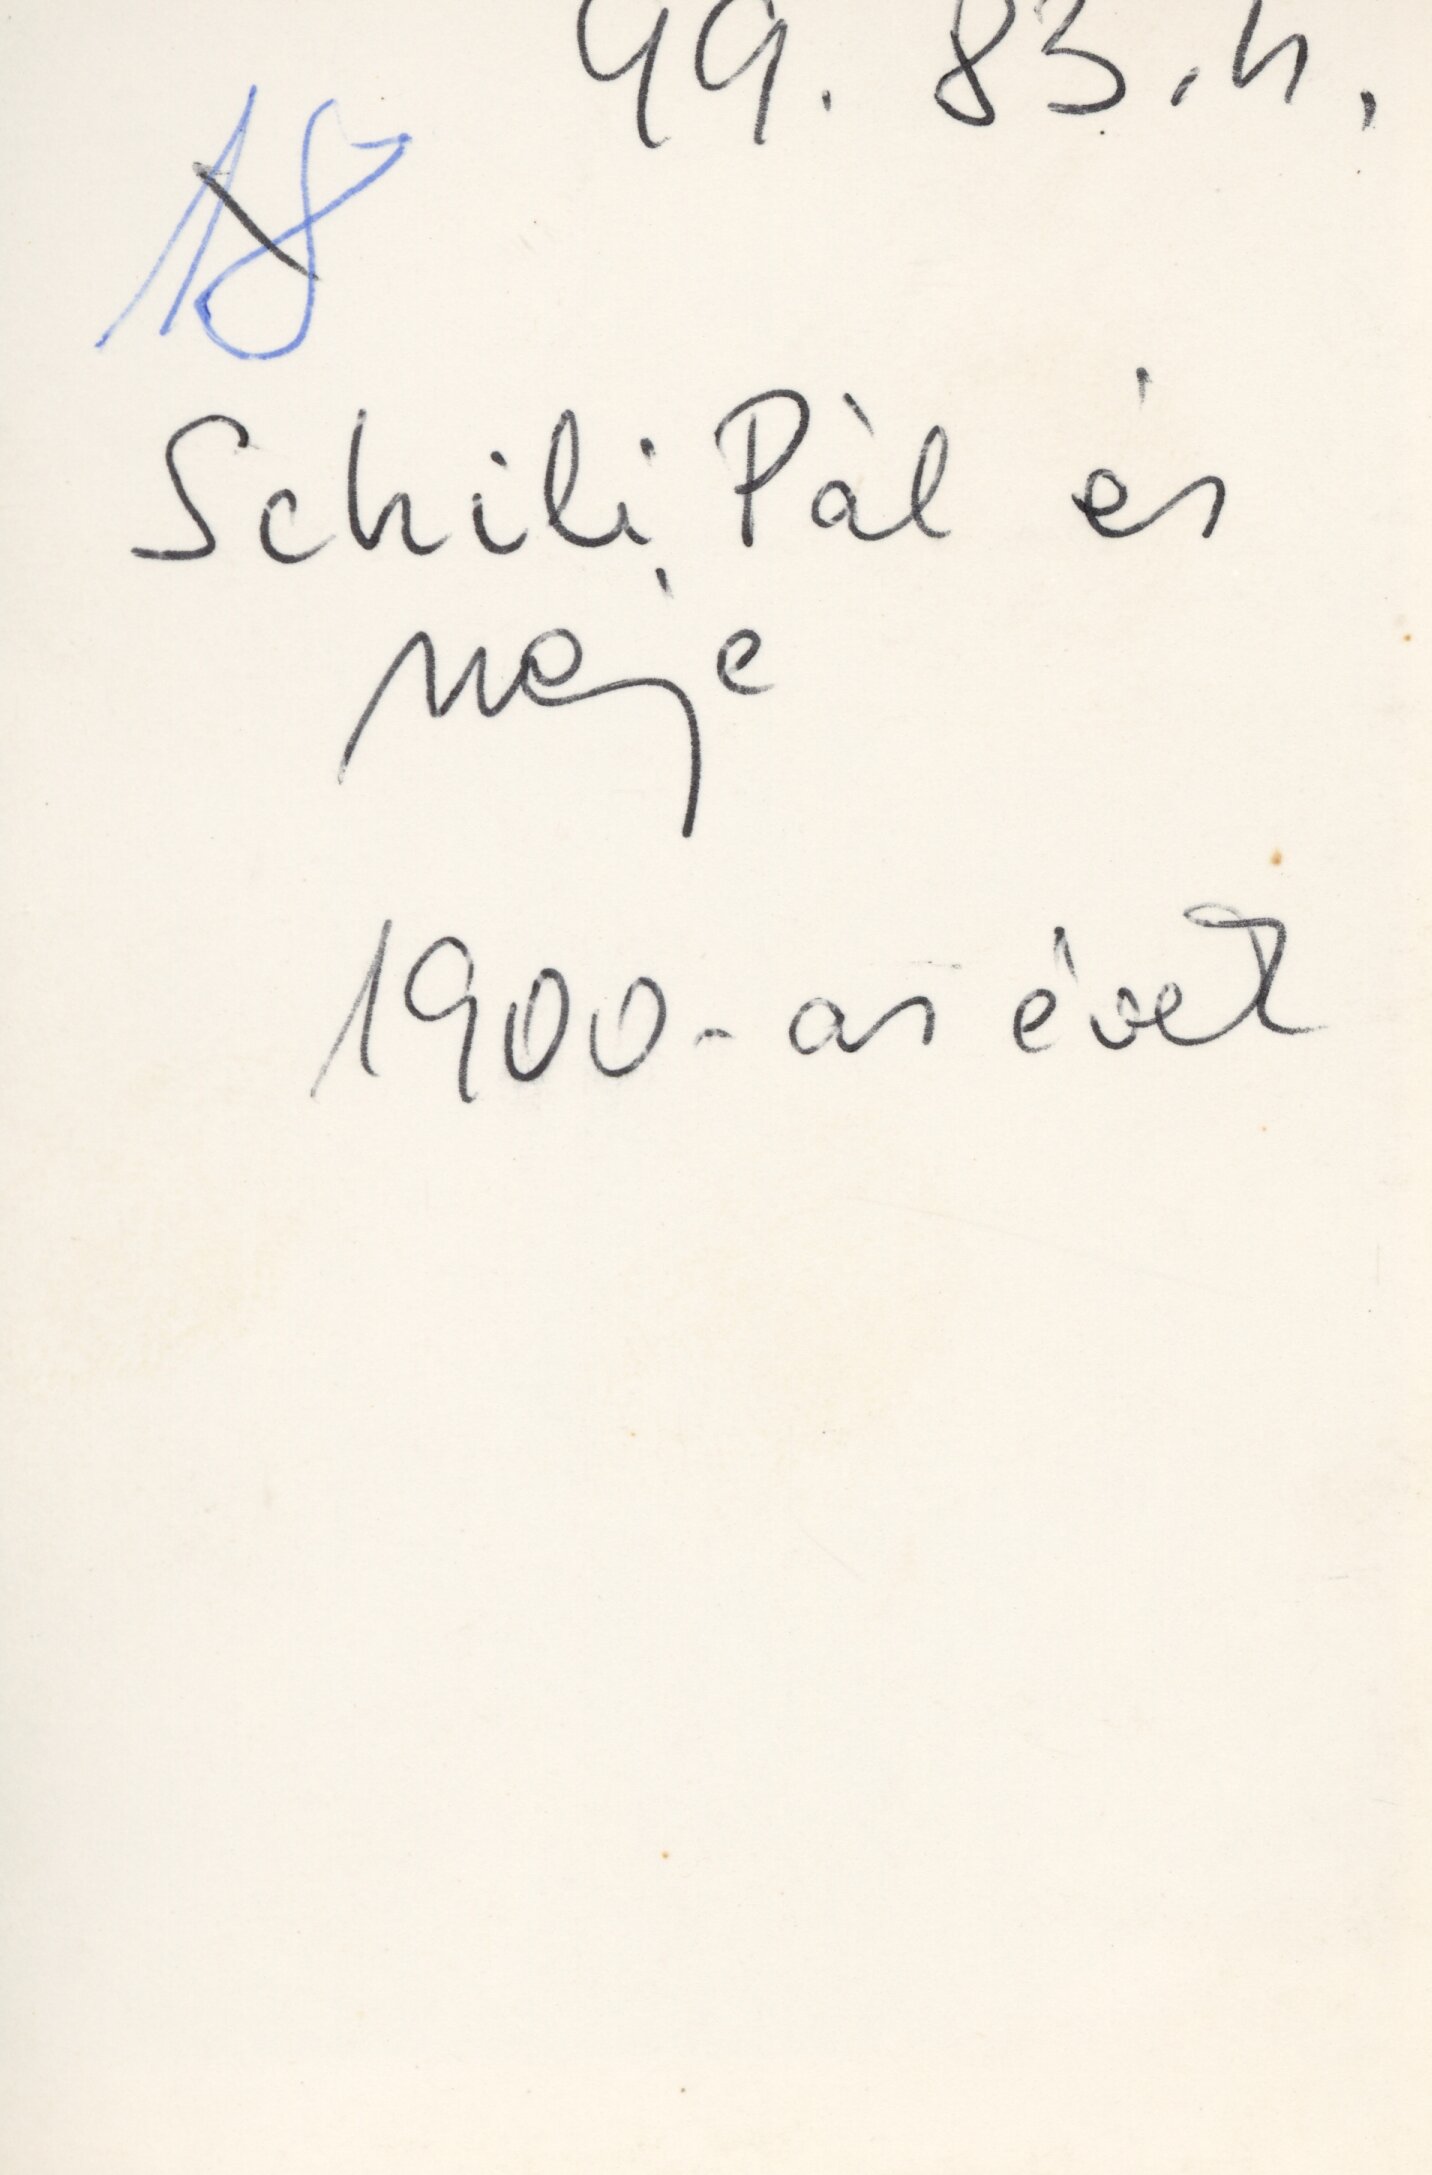 99. 83. n.
18
Schili Pál és
neje
1900-as évek